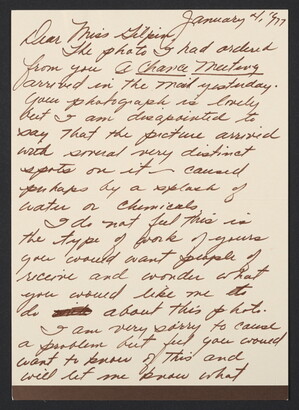 January 21, 1977
Dear Miss Gilpin,
The photo I had ordered
from you A Chance Meeting
arrived in the mail yesterday.
Your photograph is lovely
but I am disapointed to
say that the picture arrived
with several very distinct
spots on it - caused
perhaps by a splash of
water or chemicals.
I do not feel this is
the type of work of yours
you would want people to
receive and wonder what
you would like me to
do about this photo.
I am very sorry to cause
a problem but feel you would
want to know of this and
will let me know what